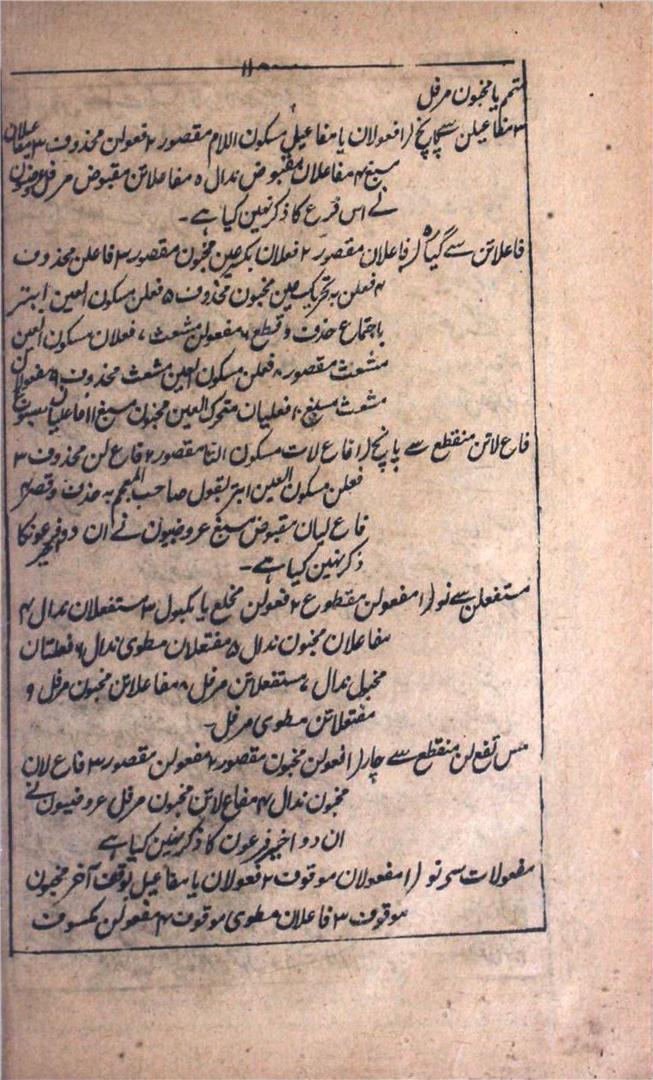 ۱۱
متمم یا مخبون مرفل
۳ مفاعیلن سے پانچ (۱ فعولان یا مفاعیل بسکون اللام مقصور ۲ فعولن محذوف ۳ مفاعیلان
مسبغ ۴ مفاعلان مقبوض مذال ۵ مفاعلاتن مقبوض مرفل عروضیون
نے اس فرع کا ذکر نہین کیا ہے۔
فاعلاتن سے گیارہ (۱ فاعلان مقصور ۲ فعلان بکسر عین مخبون مقصور ۳ فاعلن محذوف
۴ فعلن بہ تحریک عین مخبون محذوف ۵ فعلن بسکون العین ابتر
باجتماع حذف و قطع ۶ مفعولن مشعث ۷ فعلان بسکون العین
مشعث مقصور ۸ فعلن بسکون العین مشعث محذوف ۹ مفعولان
مشعث مسبغ ۱۰ فعلیان متحرک العین مخبون مسبغ ۱۱ فاعلیان مسبوغ
فاع لاتن منقطع سے پانچ (۱ فاع لات بسکون التا مقصور ۲ فاع لن محذوف ۳
فعلن بسکون العین ابتر بقول صاحب المعجم بہ حذف و قصر ۴
فاع لیان مقبوض مسبغ عروضیون نے ان دو اخیر فرعونکا
ذکر نہین کیا ہے۔
مستفعلن سے نو (۱ مفعولن مقطوع ۲ فعولن مخلع یا مکبول ۳ مستفعلان مذال ۴
مفاعلان مخبون مذال ۵ مفتعلان مطوی مذال ۶ فعلتان
مخبول مذال ۷ مستفعلاتن مرفل ۸ مفاعلاتن مخبون مرفل ۹
مفتعلاتن مطوی مرفل۔
مس تفع لن منقطع سے چار (۱ فعولن مخبون مقصور ۲ مفعولن مقصور ۳ فاع لان
مخبون مذال ۴ مفاع لاتن مخبون مرفل عروضیون نے
ان دو اخیر فرعون کا ذکر نہین کیا ہے
مفعولات سے نو (۱ مفعولان موقوف ۲ فعولان یا مفاعیل بوقف آخر مخبون
موقوف ۳ فاعلان مطوی موقوف ۴ مفعولن مکسوف